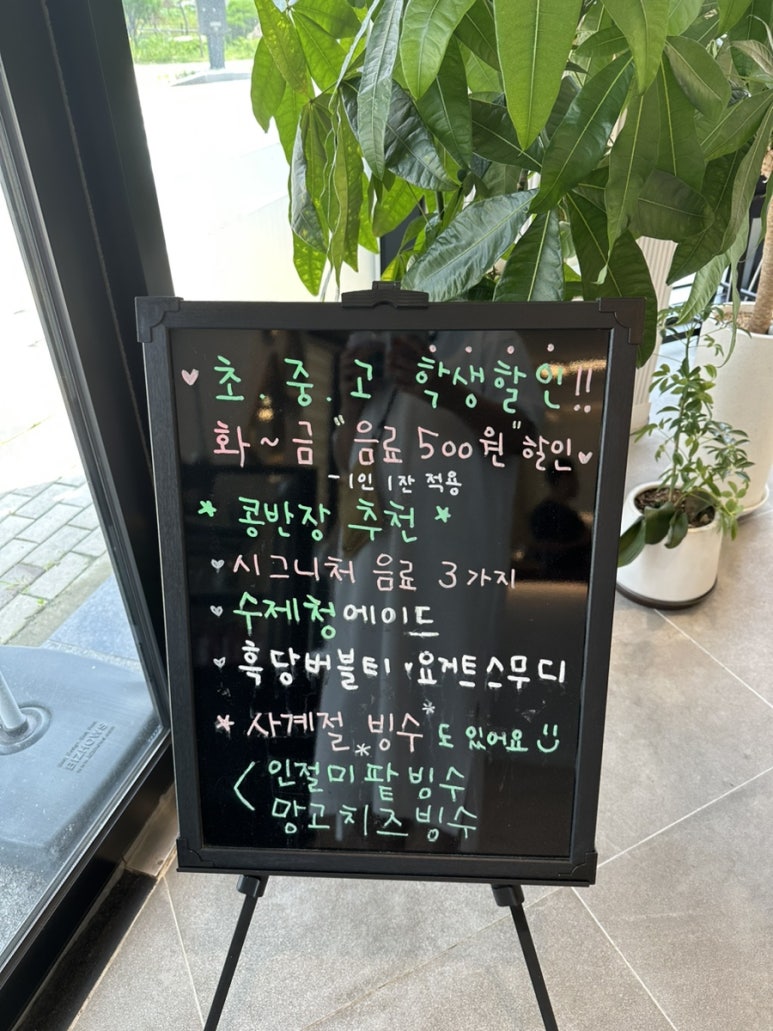 ♥ 초.중.고 학생할인!!
화~금 "음료 500원" 할인♥
-1인 1잔 적용
* 콩반장 추천 *
♥ 시그니처 음료 3가지
♥ 수제청에이드
♥ 흑당버블티 ♥요거트스무디
* 사계절 빙수도 있어요
< 인절미팥빙수
망고치즈빙수
BIZHOWS